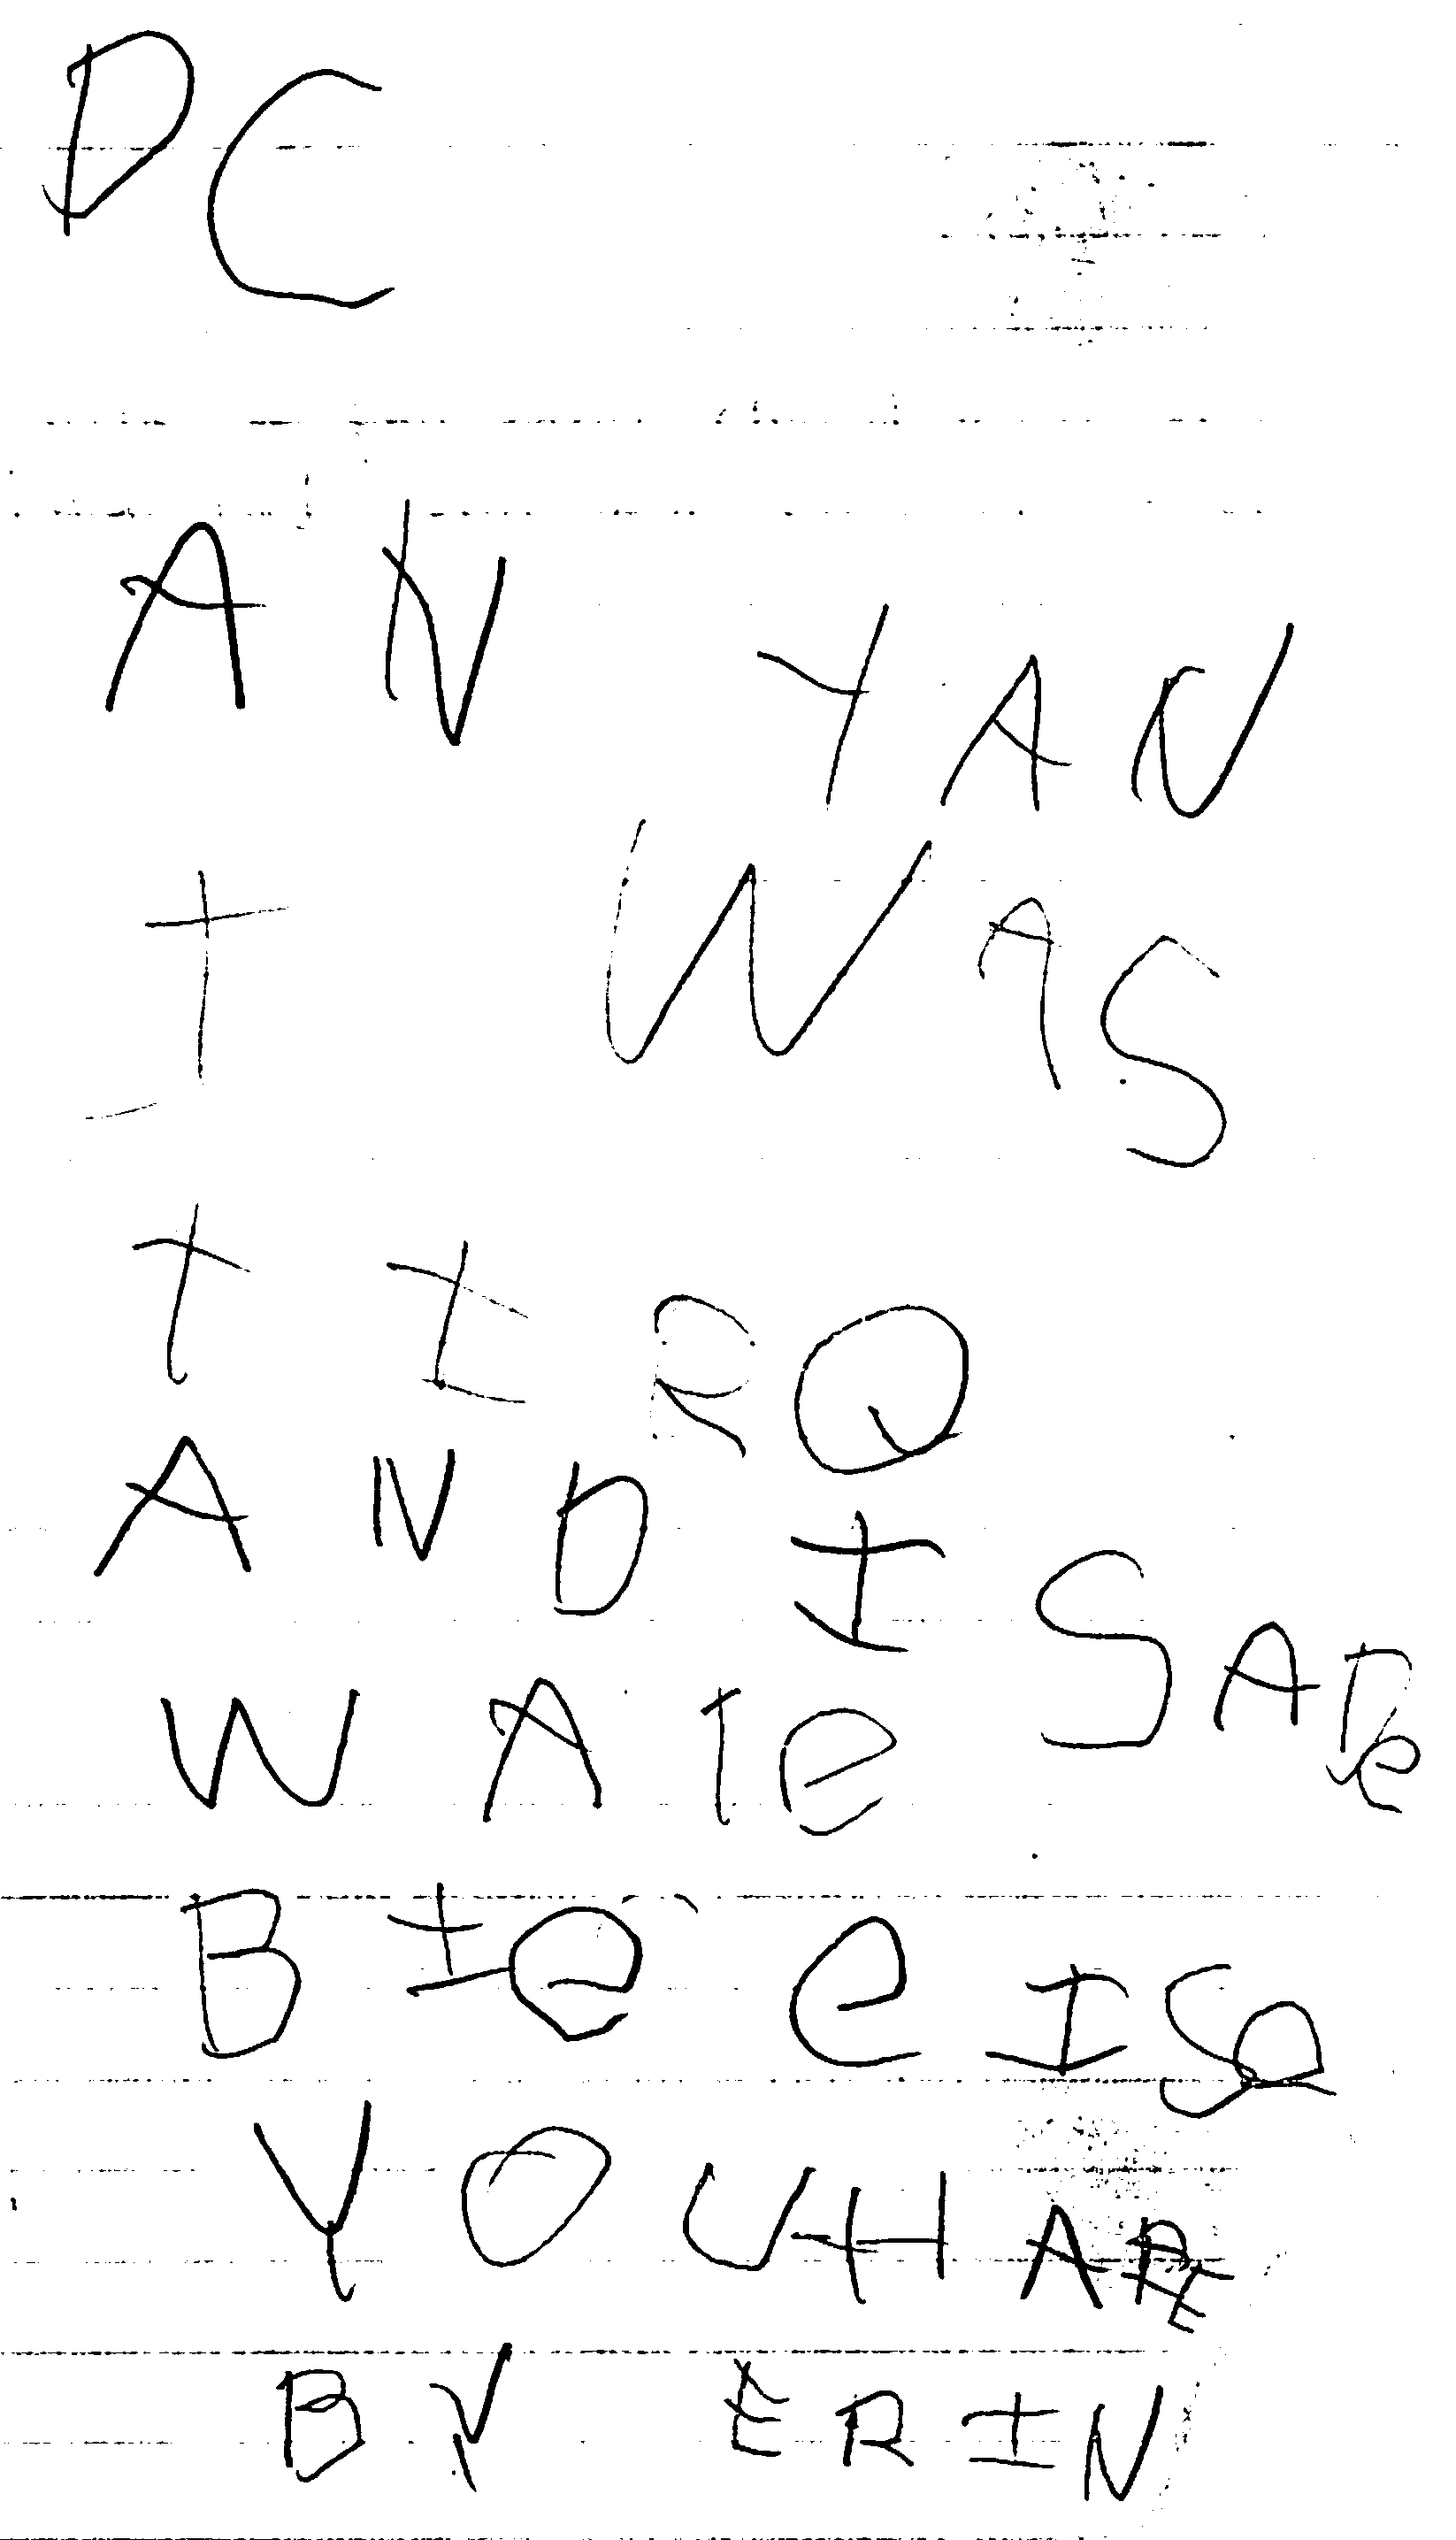 DC
AN YAN
I WAS
TIRQ
AND I SAPe
WAIe
BIQe e IS
YOU HAPE
BY ERIN